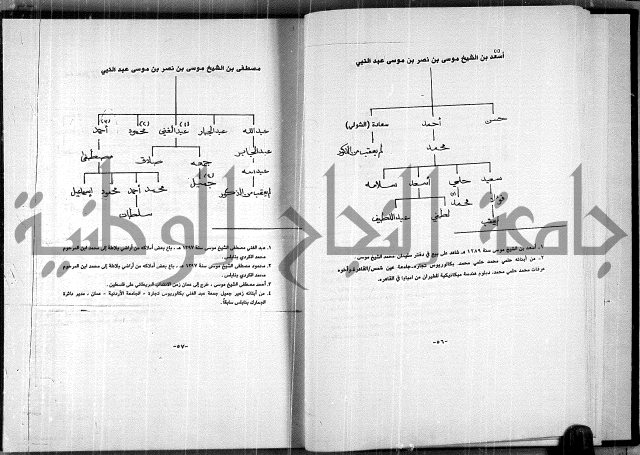 أسعد بن الشيخ موسى بن نصر بن موسى عبد النبي
حسن
أحمد
سعادة (الشولي)
محمد
لم يعقب من الذكور
سعيد
حلمي
أسعد
سلامه
محمد
لطفي
عبد اللطيف
١. أسعد بن الشيخ موسى سنة ١٢٨٩ هـ، شاهد على بيع في دفتر سليمان محمد الشيخ موسى.
٢. من أبنائه حلمي محمد حلمي محمد، بكالوريوس تجارة-جامعة عين شمس/القاهرة وأخوه
عرفات محمد حلمي محمد، دبلوم هندسة ميكانيكية للطيران من امبابا في القاهرة.
-٥٦-
مصطفى بن الشيخ موسى بن نصر بن موسى عبد النبي
عبد الله
عبد الجبار
عبد الغني (١)
محمود (٢)
أحمد (٣)
عبد الجابر
جمعه
صادق
مصطفى
عبد الله
جميل
محمد
أحمد
محمود
إسماعيل
لم يعقب من الذكور
سلطان
١. عبد الغني مصطفى الشيخ موسى سنة ١٢٩٧ هـ، باع بعض أملاكه من أراضي بلاطة إلى محمد ابن المرحوم
محمد الكردي بنابلس.
٢. محمود مصطفى الشيخ موسى سنة ١٢٩٧ هـ، باع بعض أملاكه من أراضي بلاطة إلى محمد ابن المرحوم
محمد الكردي بنابلس.
٣. أحمد مصطفى الشيخ موسى، خرج إلى عمان زمن الانتداب البريطاني على فلسطين.
٤. من أبنائه زهير جميل جمعة عبد الغني بكالوريوس تجارة - الجامعة الأردنية - عمان، مدير دائرة
الجمارك بنابلس سابقاً.
-٥٧-
جامعة النجاح الوطنية